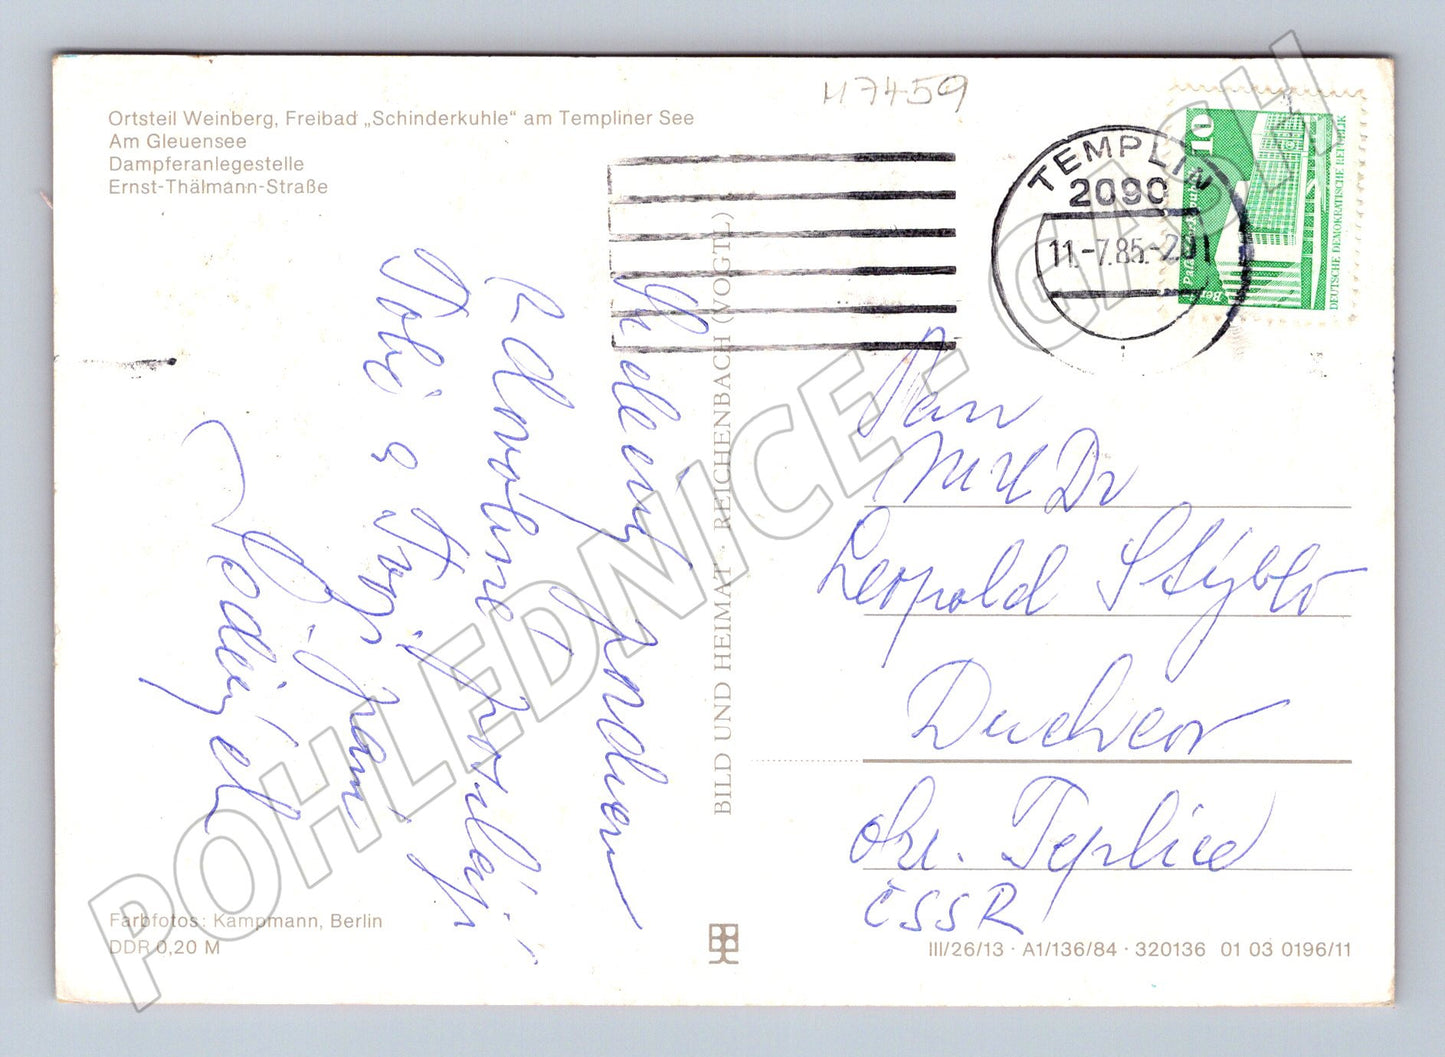 Ortsteil Weinberg, Freibad „Schinderkuhle“ am Templiner See
Am Gleuensee
Dampferanlegestelle
Ernst-Thälmann-Straße
H7459
TEMPLIN
2090
11.-7.85.-20
10
Palast
Berlin
DEUTSCHE DEMOKRATISCHE REPUBLIK
Srdečný pozdrav
z dovolené posílají
Tobě a
Pan
MUDr
Leopold Stýblo
Duchcov
okr. Teplice
ČSSR
BILD UND HEIMAT · REICHENBACH (VOGTL)
Farbfotos: Kampmann, Berlin
DDR 0,20 M
III/26/13 · A1/136/84 · 320136 01 03 0196/11
POHLEDNICE - GASH